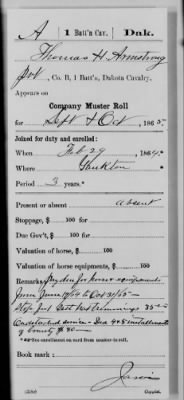 A | 1 Batt'n Cav. | Dak.
Thomas H. Armstrong
Pvt, Co. B, 1 Batt'n, Dakota Cavalry.
Appears on
Company Muster Roll
for Sept & Oct, 1865.
Joined for duty and enrolled:
When Feb 29, 1864.
Where Yankton
Period 3 years.*
Present or absent absent
Stoppage, $ 100 for
Due Gov't, $ 100 for
Valuation of horse, $ 100
Valuation of horse equipments, $ 100
Remarks: for horse equipments
from June 10/64 to Oct 31/65
Stop for
service - Due 4 & 5 installments
of bounty $80
*See enrollment on card from muster-in roll.
Book mark:
(358)
Copyist.